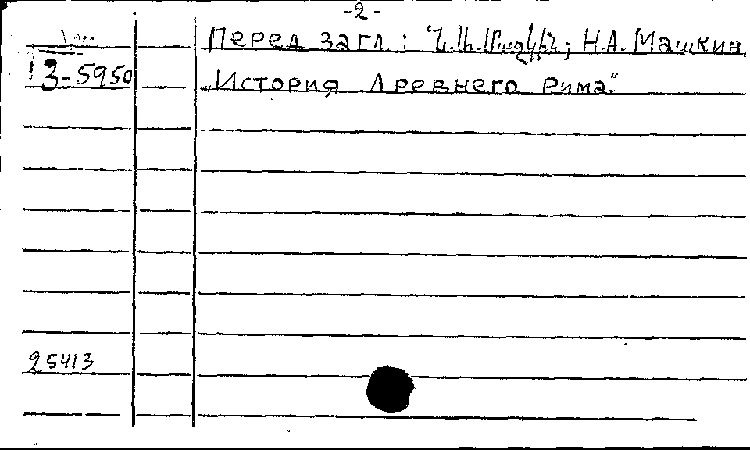 -2-
Перед загл.: Ն.Ա. Մաշկին; Н.А. Машкин
3-5950
„История Древнего Рима"
25413